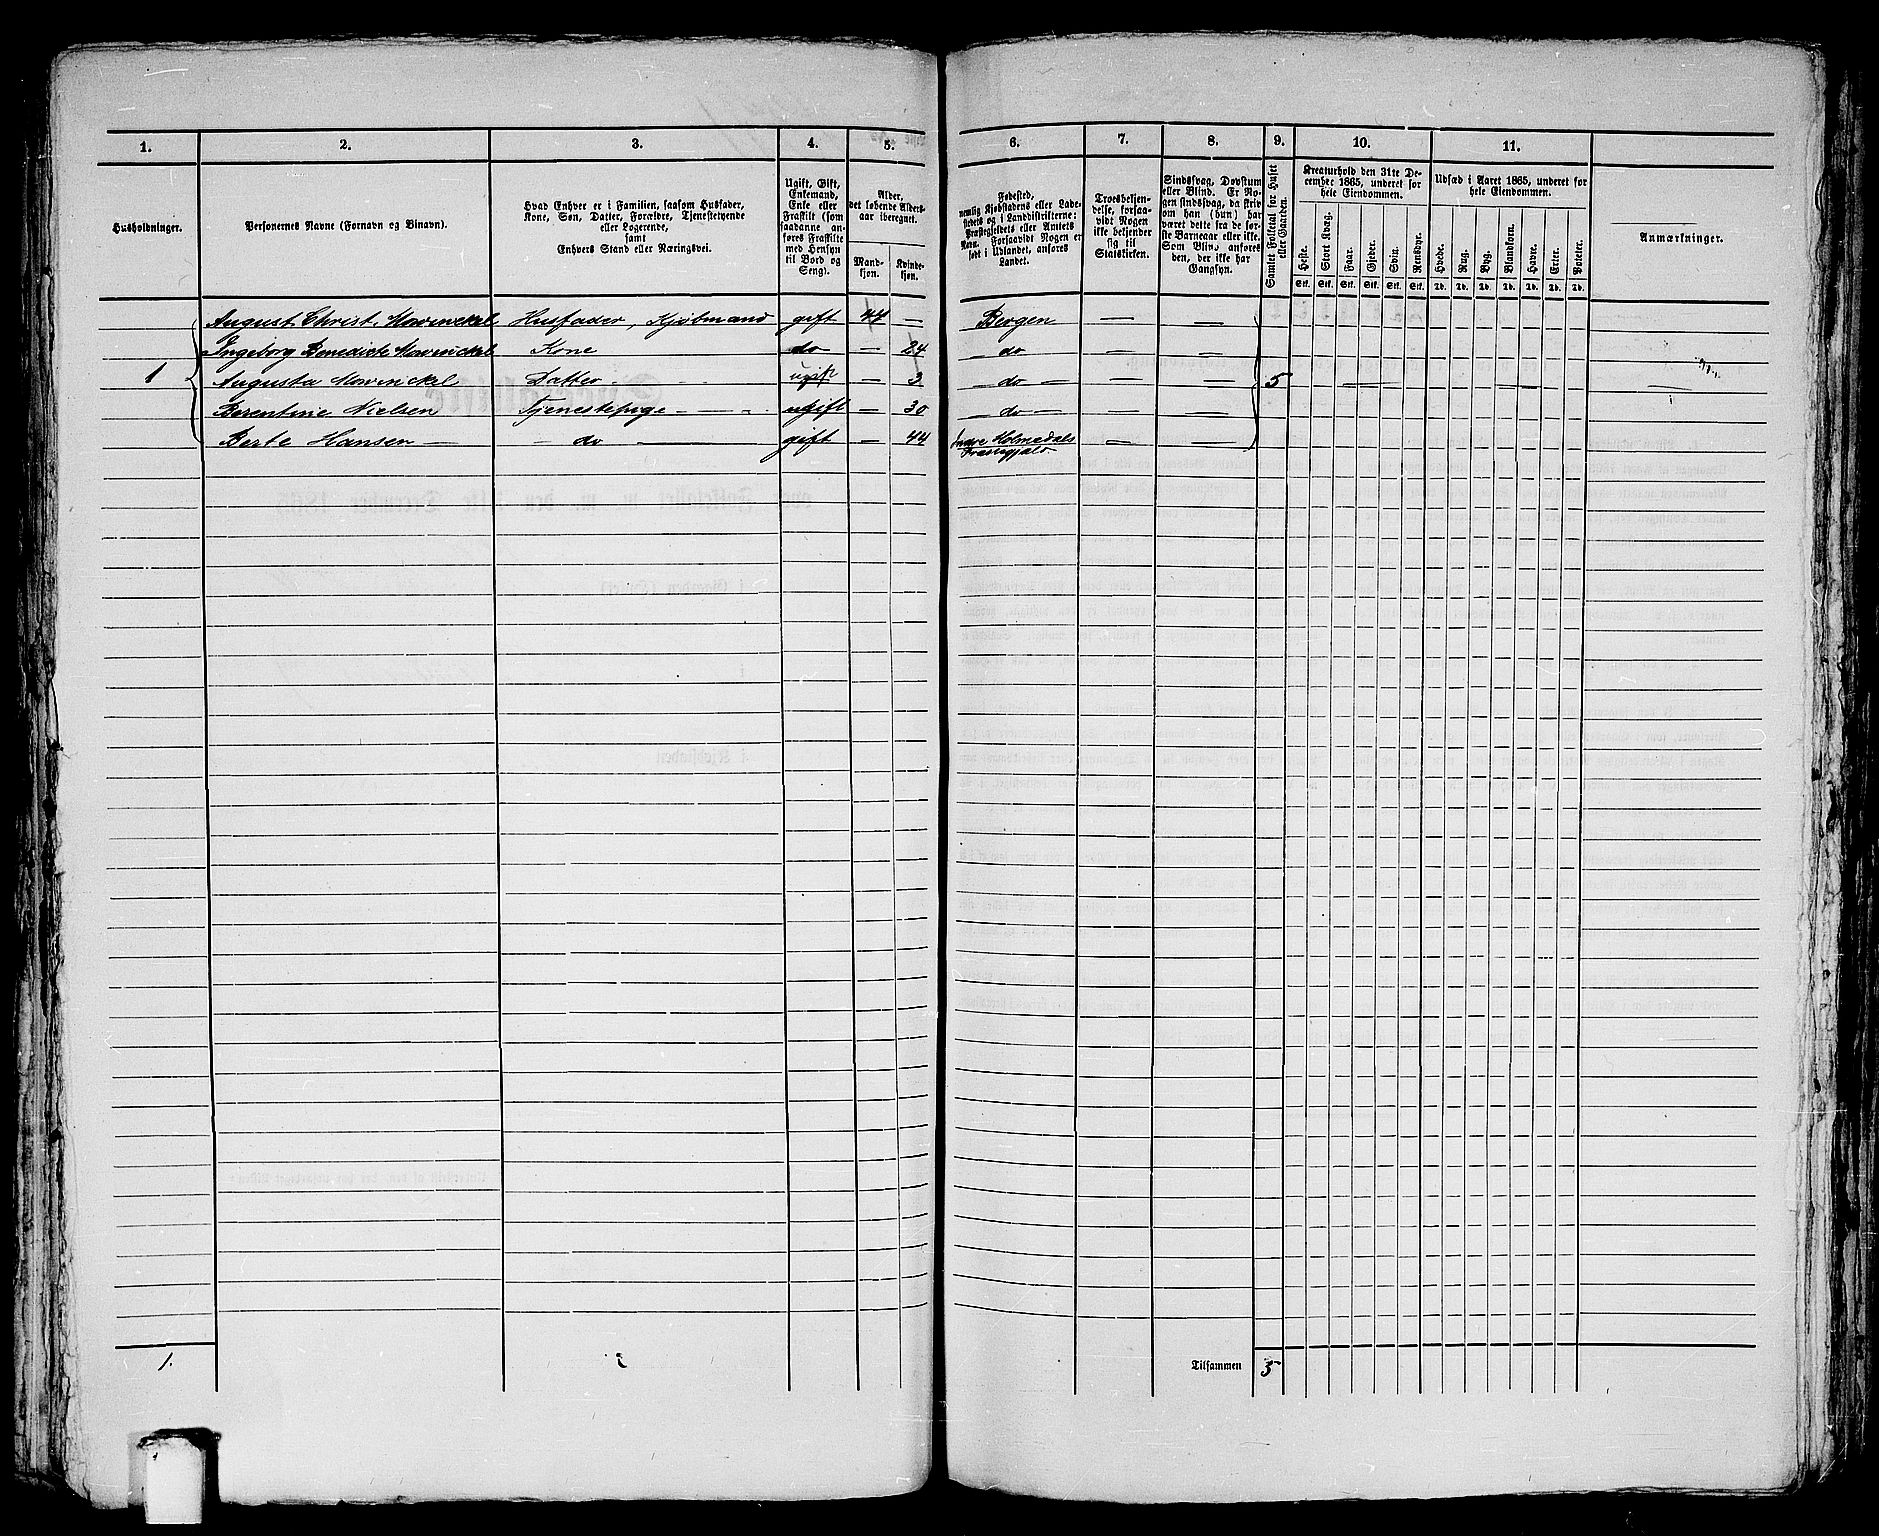 1. 2. 3. 4. 5. 6. 7. 8. 9. 10. 11.
Husholdninger.
Personernes Navne (Fornavn og Binavn).
Hvad Enhver er i Familien, saasom Husfader,
Kone, Søn, Datter, Forældre, Tjenestetyende
eller Logerende,
samt
Enhvers Stand eller Næringsvei.
Ugift, Gift,
Enkemand,
Enke eller
Fraskilt (som
saadanne an-
føres Fraskilte
med Hensyn
til Bord og
Seng).
Alder,
det løbende Alders-
aar iberegnet.
Mand-
kjøn.
Kvinde-
kjøn.
Fødested,
nemlig Kjøbstadens eller Lade-
stedets og i Landdistrikterne:
Præstegjeldets eller Amtets
Navn. Forsaavidt Nogen er
født i Udlandet, anføres
Landet.
Troesbekjen-
delse, forsaa-
vidt Nogen
ikke bekjender
sig til
Statskirken.
Sindssvag, Døvstum
eller Blind. Er No-
gen sindssvag, da skriv
om han (hun) har
været dette fra de før-
ste Barneaar eller ikke.
Som Blind anføres
den, der ikke har
Gangsyn.
Samlet Folketal for Huset
eller Gaarden.
Kreaturhold den 31te De-
cember 1865, underet for
hele Eiendommen.
Heste. Stort Kvæg. Faar. Gjeder. Svin. Rensdyr.
Stk. Stk. Stk. Stk. Stk. Stk.
Udsæd i Aaret 1865, underet for
hele Eiendommen.
Hvede. Rug. Byg. Blandkorn. Havre. Erter. Poteter.
Td. Td. Td. Td. Td. Td. Td.
Anmærkninger.
August Christ. Mowinckel Husfader, Kjøbmand gift 44 — Bergen — —
Ingeborg Benedicte Mowinckel Kone do — 24 — do — —
1 Augusta Mowinckel Datter ugift — 3 — do — — 5
Berentine Nielsen Tjenestepige ugift — 30 — do — — —
Berte Hansen — do — gift — 44 Indre Holmedals — —
Præstegjæld
1. Tilsammen 5